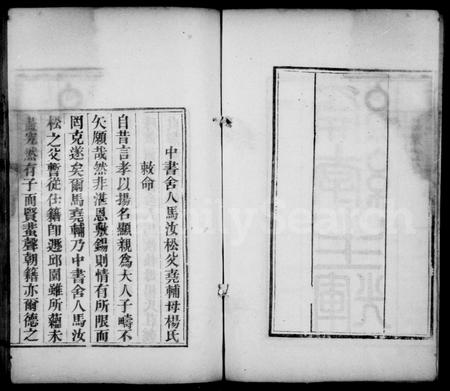 中書舍人馬汝松父堯輔母楊氏
敕命
自昔言孝以揚名顯親爲大人子疇不
矢願哉然非湛恩敷錫則情有所限而
罔克遂矣爾馬堯輔乃中書舍人馬汝
松之父暫從仕籍卽遯邱園雖所蘊未
究然有子而賢蜚聲朝籍亦爾德之